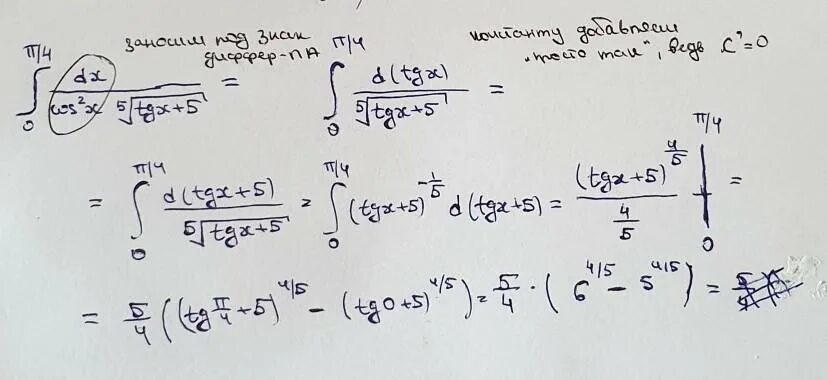 заносим под знак дуффер-ла
константу добавляем "просто так", ведь C'=0
∫_0^{π/4} dx / (cos²x ⁵√(tgx+5)) = ∫_0^{π/4} d(tgx) / ⁵√(tgx+5) =
= ∫_0^{π/4} d(tgx+5) / ⁵√(tgx+5) = ∫_0^{π/4} (tgx+5)^{-1/5} d(tgx+5) = (tgx+5)^{4/5} / (4/5) |_0^{π/4} =
= 5/4 ((tg π/4 + 5)^{4/5} - (tg0+5)^{4/5}) = 5/4 · (6^{4/5} - 5^{4/5}) =